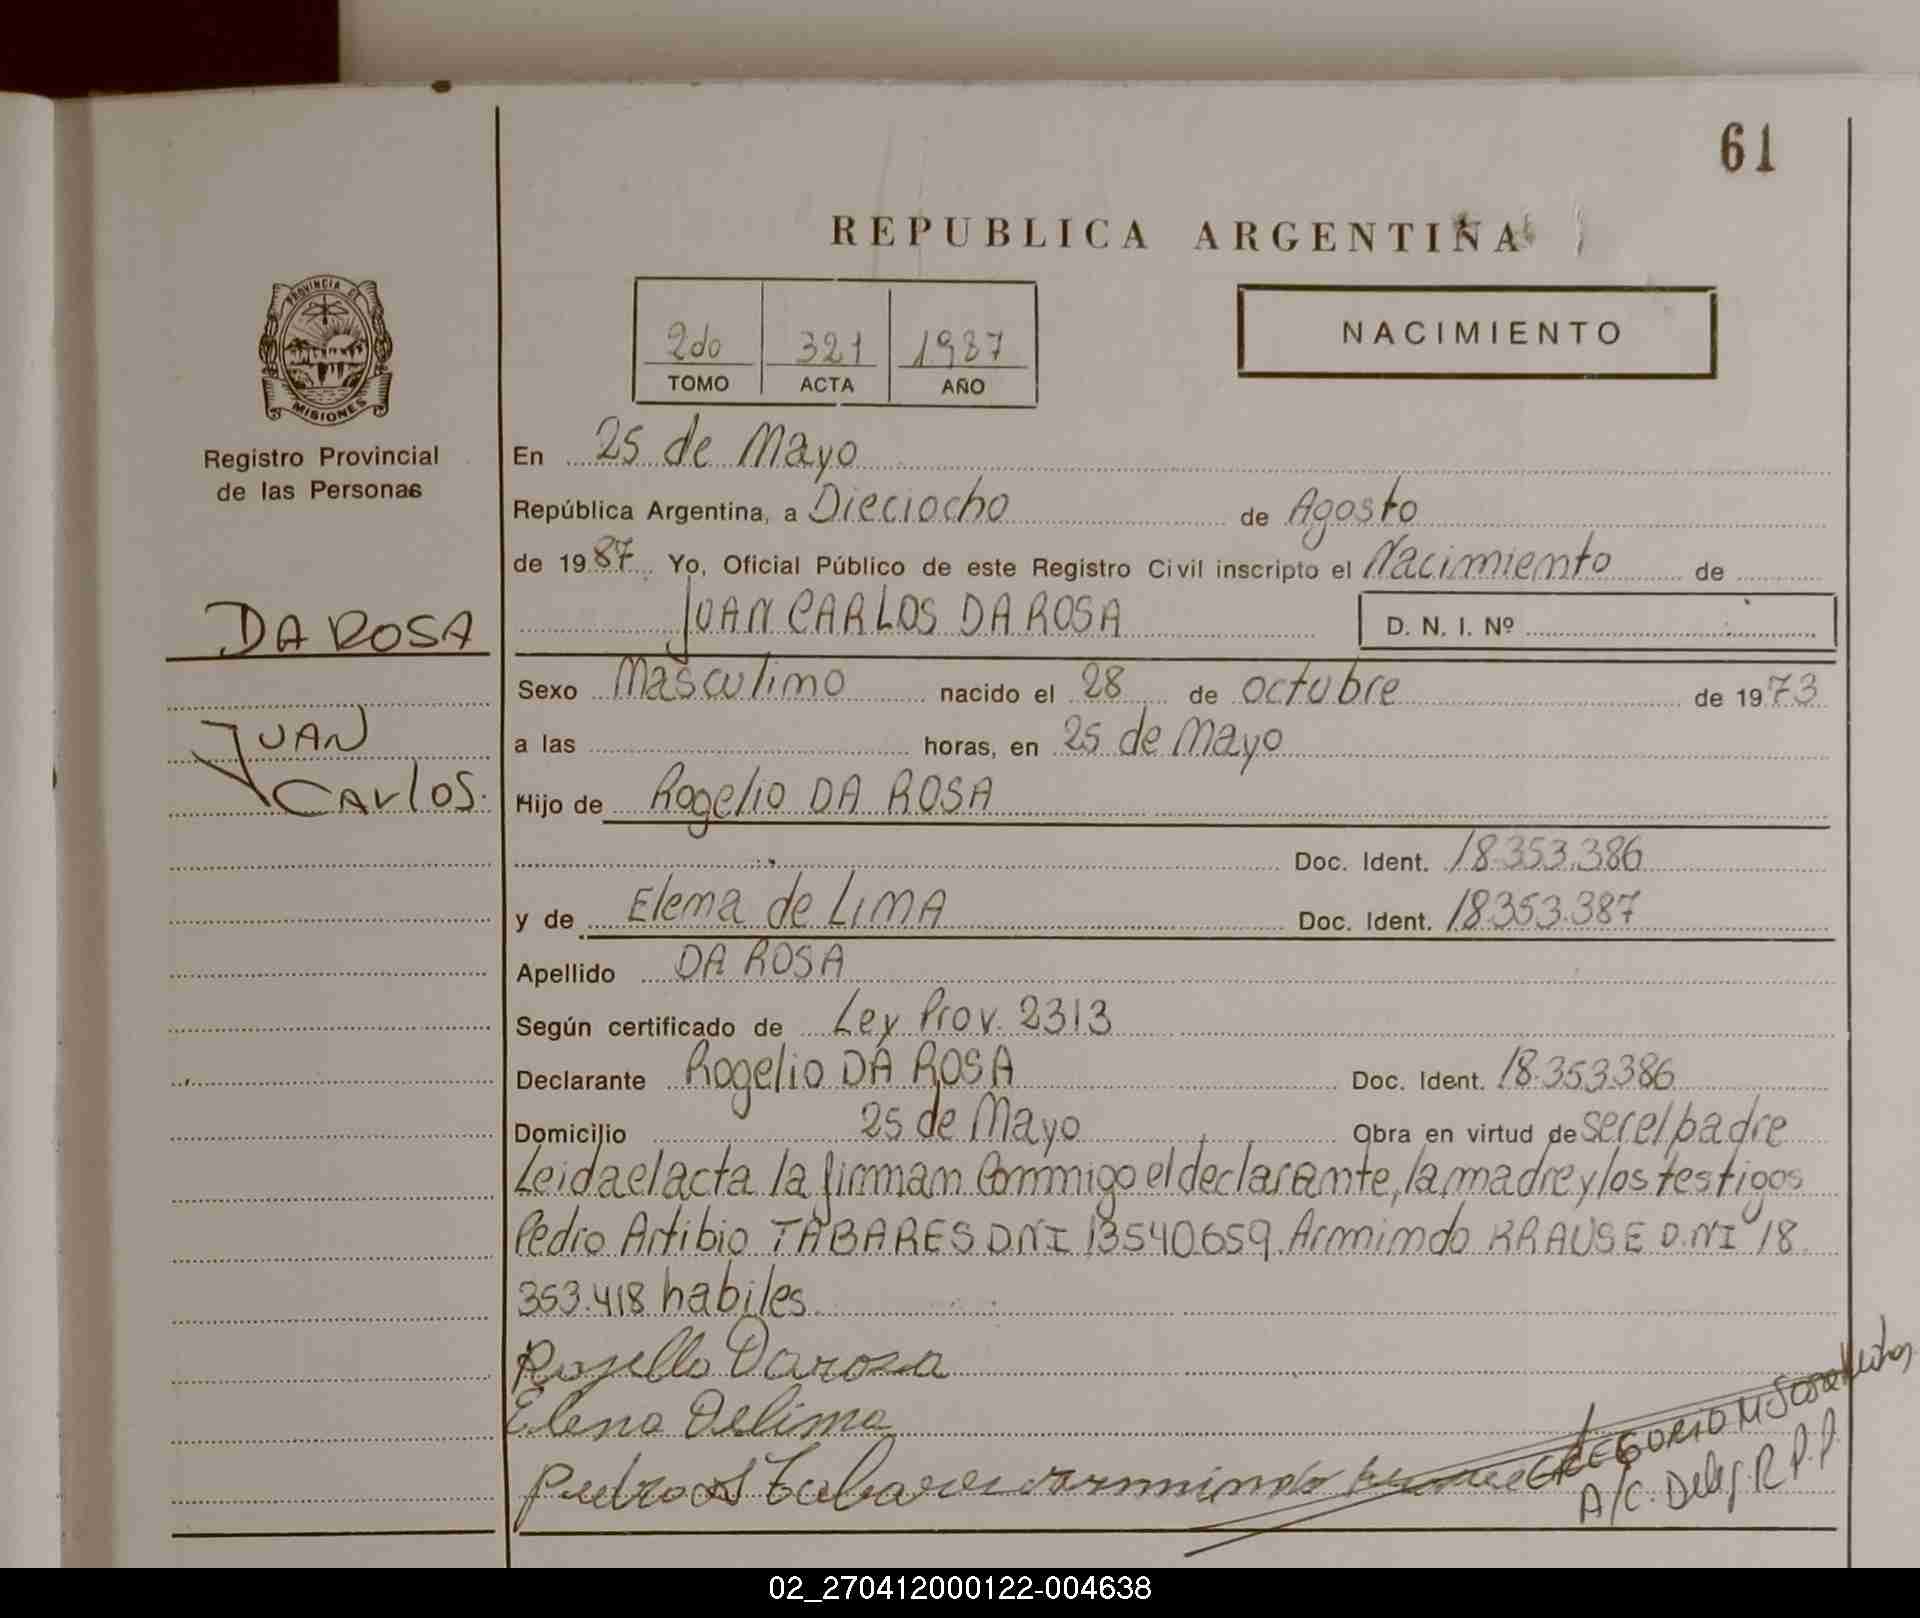 61
REPUBLICA ARGENTINA
PROVINCIA DE
MISIONES
Registro Provincial
de las Personas
2do 321 1987
TOMO ACTA AÑO
NACIMIENTO
DA ROSA
JUAN
CARLOS.
En 25 de Mayo
República Argentina, a Dieciocho de Agosto
de 1987. Yo, Oficial Público de este Registro Civil inscripto el Nacimiento de
JUAN CARLOS DA ROSA D. N. I. Nº
Sexo Masculino nacido el 28 de octubre de 1973
a las horas, en 25 de Mayo
Hijo de Rogelio DA ROSA
Doc. Ident. 18.353.386
y de Elena de LIMA Doc. Ident. 18.353.387
Apellido DA ROSA
Según certificado de Ley Prov. 2313
Declarante Rogelio DA ROSA Doc. Ident. 18.353.386
Domicilio 25 de Mayo Obra en virtud de ser el padre
Leida el acta la firman Conmigo el declarante, la madre y los testigos
Pedro Artibio TABARES D.N.I 13.540.659. Armindo KRAUSE D.N.I 18.
353.418 habiles
Rogello Darosa
Elena Delima
Pedro A Tabares Armindo Krause GREGORIO M Sosa
A/C. Deleg. R.P.P.
02_270412000122-004638